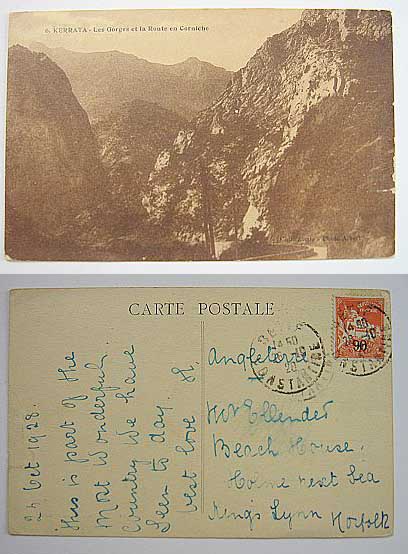 6. KERRATA - Les Gorges et la Route en Corniche
CARTE POSTALE
24 Oct 1928.
This is part of the
most wonderful
country we have
seen to day.
best love H.
CONSTANTINE
90
Angleterre
Ellender
Beach House.
Holme next Sea
Kings Lynn
Norfolk